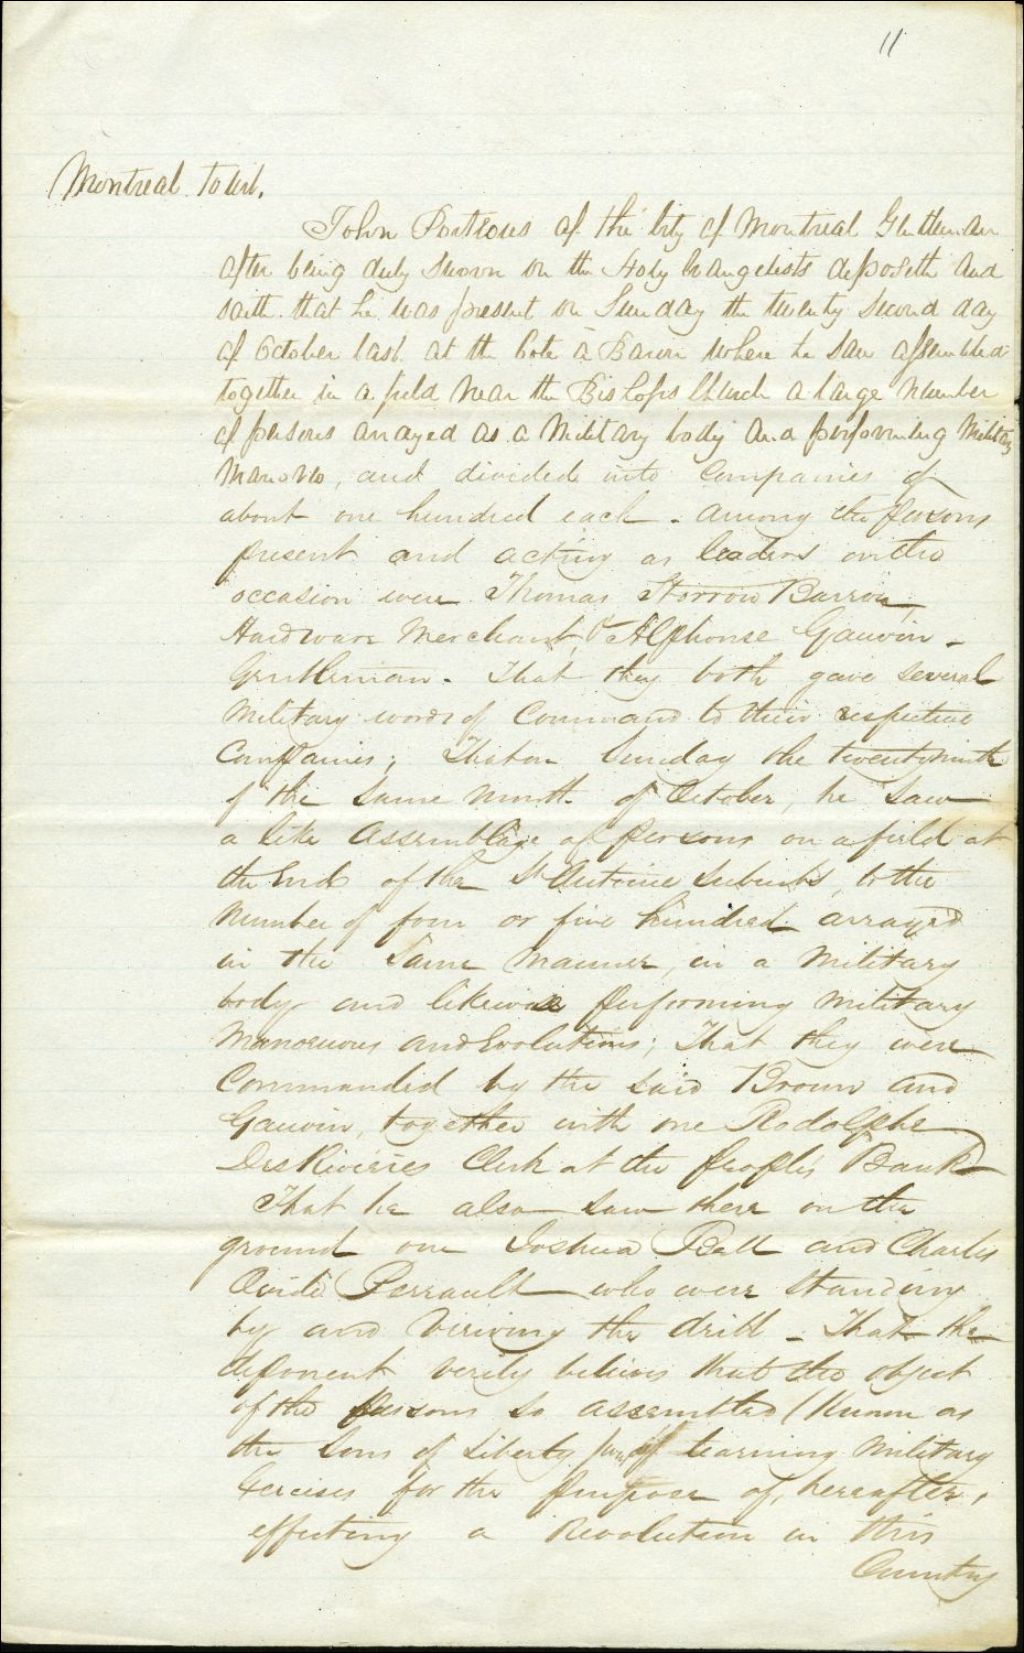 11
Montreal to wit.
John Porteous of the City of Montreal Gentleman
after being duly sworn on the Holy Evangelists deposeth and
saith that he was present on Sunday the twenty second day
of October last at the Cote à Baron where he saw assembled
together in a field near the Bishops Church a large number
of persons arrayed as a Military body and performing Military
, and divided into Companies of
about one hundred each. among the persons
present and acting as leaders on the
occasion were Thomas Storrow
Hardware Merchant, & Alphonse Gauvin -
Gentleman. That they both gave several
Military words of Command to their respective
Companies; That on Sunday the twenty ninth
of the same month of October, he saw
a like Assemblage of persons on a field at
the End of the St Antoine suburbs, to the
Number of four or five hundred arrayed
in the same manner, in a military
body and likewise performing military
Manoeuvres and Evolutions; That they were
Commanded by the said Brown and
Gauvin, together with one Rodolphe
DesRivières Clerk at the peoples Bank
That he also saw there on the
ground one Joshua Bell and Charles
Ovide Perrault who were standing
by and viewing the drill - That the
deponent verily believes that the object
of the persons so assembled (Known as
the Sons of Liberty of learning military
Exercises for the purpose of, hereafter,
effecting a Revolution in this
Country